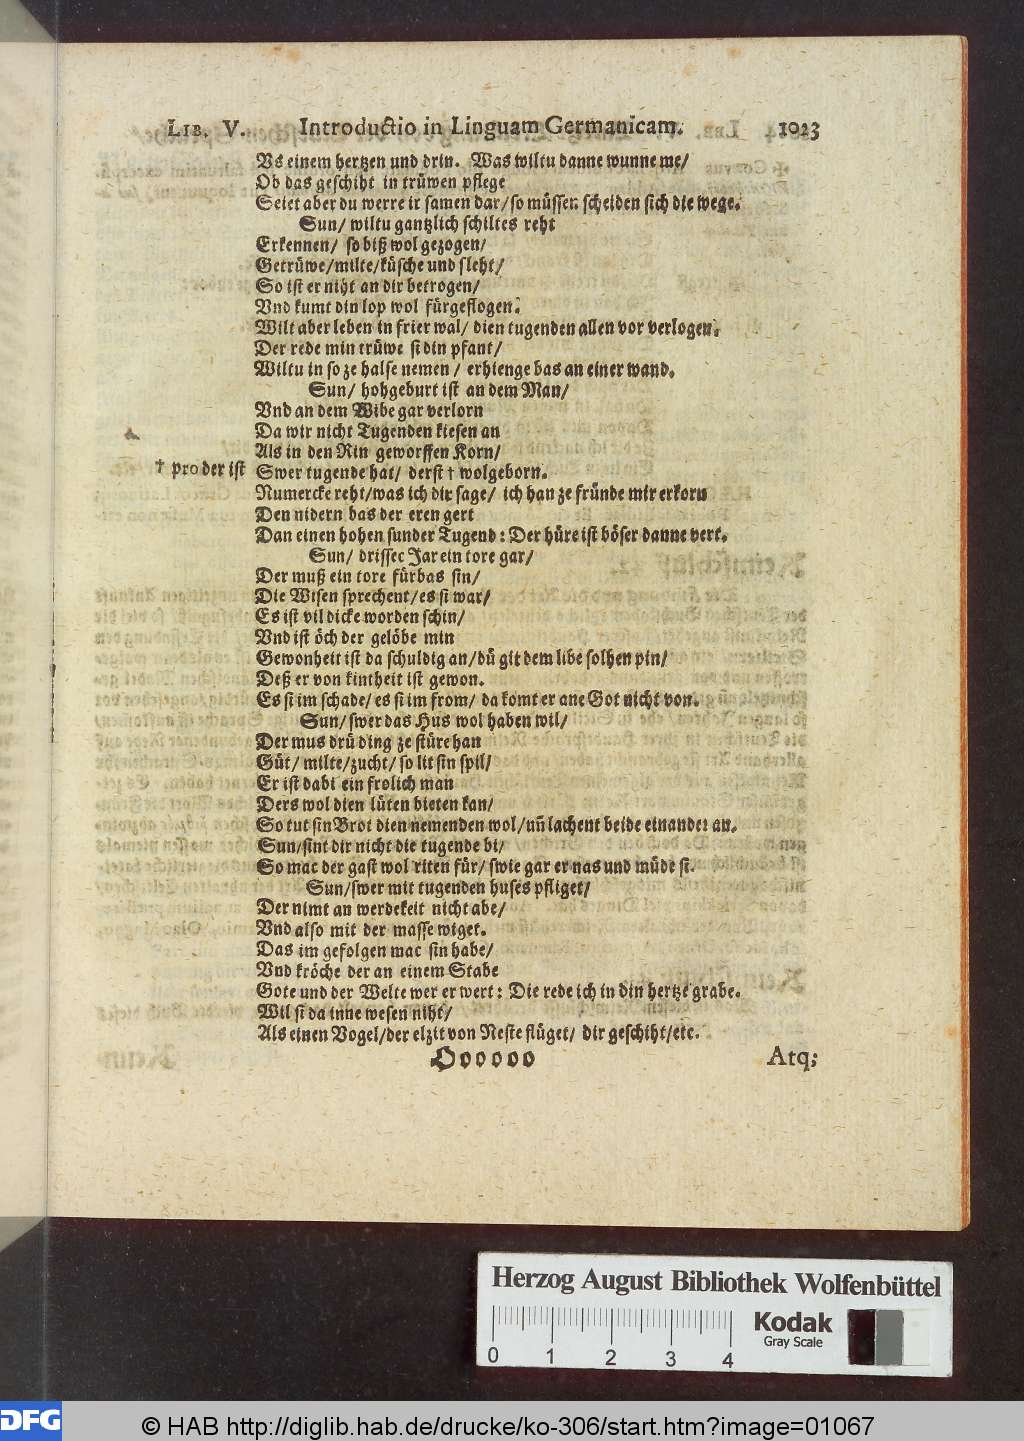 LIB. V. Introductio in Linguam Germanicam. 1023
Vs einem hertzen und drin. Was wiltu danne wunne me/
Ob das geschiht in trüwen pflege
Seiet aber du werre ir samen dar/ so müssen scheiden sich die wege.
Sun/ wiltu gantzlich schiltes reht
Erkennen/ so biß wol gezogen/
Getrüwe/milte/küsche und sleht/
So ist er niht an dir betrogen/
Vnd kumt din lop wol fürgeflogen.
Wilt aber leben in frier wal/ dien tugenden allen vor verlogen.
Der rede min trüwe si din pfant/
Wiltu in so ze halse nemen/ er hienge bas an einer wand.
Sun/ hohgeburt ist an dem Man/
Vnd an dem Wibe gar verlorn
Da wir nicht Tugenden kiesen an
Als in den Rin geworffen Korn/
† pro der ist Swer tugende hat/ derst † wolgeborn.
Numercke reht/was ich dir sage/ ich han ze fründe mir erkorn
Den nidern bas der eren gert
Dan einen hohen sunder Tugend: Der hüre ist böser danne vert.
Sun/ drissec Jar ein tore gar/
Der muß ein tore fürbas sin/
Die Wisen sprechent/es si war/
Es ist vil dicke worden schin/
Vnd ist öch der gelöbe min
Gewonheit ist da schuldig an/dü git dem libe solhen pin/
Deß er von kintheit ist gewon.
Es si im schade/ es si im from/ da komt er ane Got nicht von.
Sun/swer das Hus wol haben wil/
Der mus drü ding ze stüre han
Güt/ milte/zucht/ so lit sin spil/
Er ist dabi ein frolich man
Ders wol dien lüten bieten kan/
So tut sin Brot dien nemenden wol/uñ lachent beide einander an.
Sun/sint dir nicht die tugende bi/
So mac der gast wol riten für/ swie gar er nas und müde si.
Sun/swer mit tugenden huses pfliget/
Der nimt an werdekeit nicht abe/
Vnd also mit der masse wiget.
Das im gefolgen mac sin habe/
Vnd kröche der an einem Stabe
Gote und der Welte wer er wert: Die rede ich in din hertze grabe.
Wil si da inne wesen niht/
Als einen Vogel/der elzit von Neste flüget/ dir geschiht/etc.
Oooooo Atq;
Herzog August Bibliothek Wolfenbüttel
Kodak
Gray Scale
0 1 2 3 4
DFG © HAB http://diglib.hab.de/drucke/ko-306/start.htm?image=01067